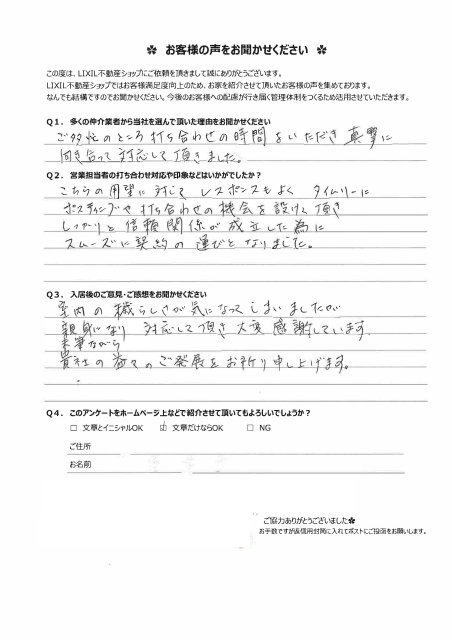 ✿ お客様の声をお聞かせください ✿
この度は、LIXIL不動産ショップにご依頼を頂きまして誠にありがとうございます。
LIXIL不動産ショップではお客様満足度向上のため、お家を紹介させて頂いたお客様の声を集めております。
なんでも結構ですのでお聞かせください。今後のお客様への配慮が行き届く管理体制をつくるため活用させていただきます。
Q1. 多くの仲介業者から当社を選んで頂いた理由をお聞かせください
ご多忙のところ打ち合わせの時間をいただき真摯に
向き合って対応して頂きました。
Q2. 営業担当者の打ち合わせ対応や印象などはいかがでしたか?
こちらの用望に対して レスポンスもよく タイムリーに
ポスティングや打ち合わせの機会を設けて頂き
しっかりと信頼関係が成立した為に
スムーズに契約の運びとなりました。
Q3. 入居後のご意見・ご感想をお聞かせください
室内の 穢らしさが気になってしまいましたが
親身になり 対応して頂き大変感謝しています。
末筆ながら
貴社の益々のご発展をお祈り申し上げます。
Q4. このアンケートをホームページ上などで紹介させて頂いてもよろしいでしょうか?
□ 文章とイニシャルOK ☑ 文章だけならOK □ NG
ご住所
お名前
ご協力ありがとうございました✿
お手数ですが返信用封筒に入れてポストにご投函をお願いします。